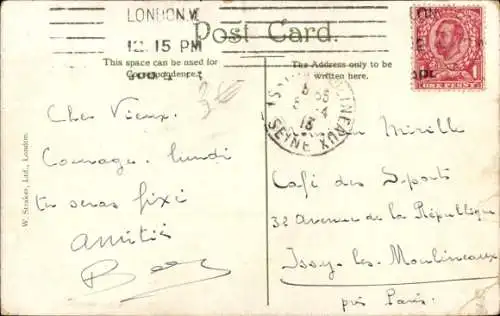 LONDON. W
12. 15 PM
Post Card.
This space can be used for
Correspondence.
The Address only to be
written here.
ONE PENNY
SEINE
13
W. Straker, Ltd., London.
Cher Vieux.
Courage. lundi
tu seras fixé
amitiés
Mireille
Café des Sports
32 Avenue de la République
Issy-les-Moulineaux
près Paris.